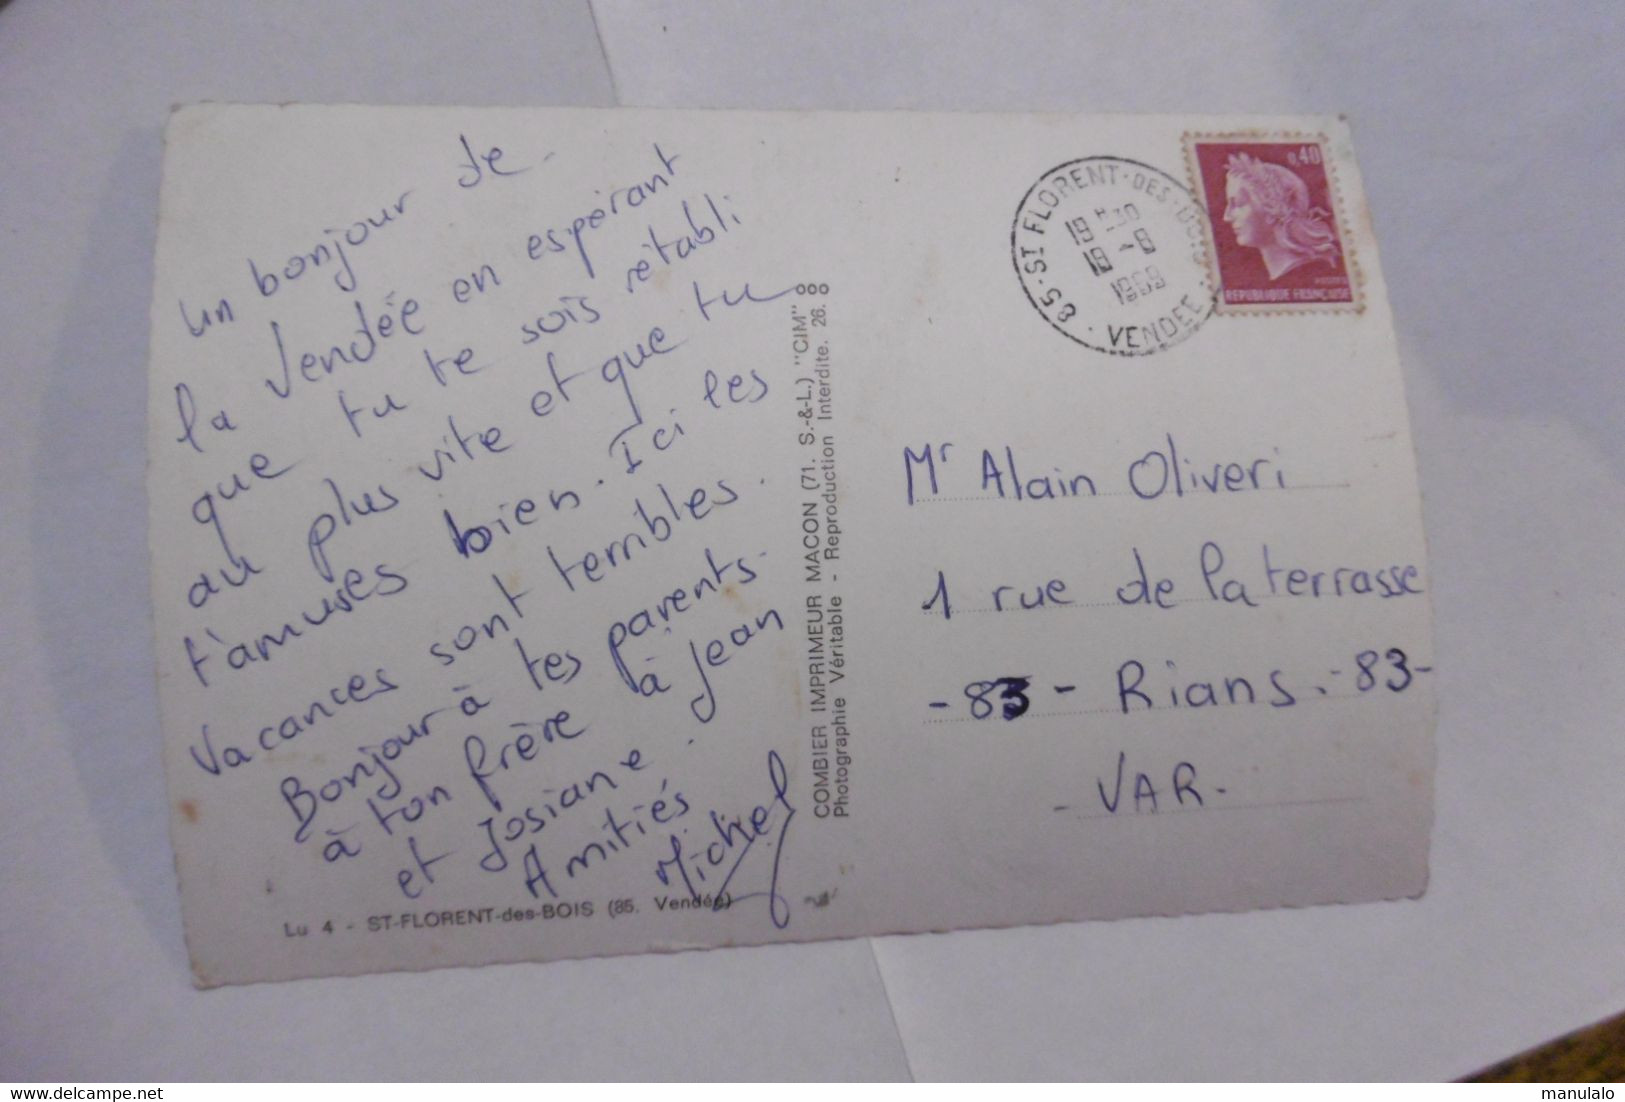 un bonjour de
la Vendée en espérant
que tu te sois rétabli
au plus vite et que tu
t'amuses bien. Ici les
Vacances sont terribles.
Bonjour à tes parents.
à ton frère à Jean
et Josiane.
Amitiés
Michel
Lu 4 - ST-FLORENT-des-BOIS (85. Vendée)
COMBIER IMPRIMEUR MACON (71. S.-&-L.) "CIM"
Photographie Véritable - Reproduction Interdite. 26.
85 - ST FLORENT-DES-
1969
VENDEE
0,40
REPUBLIQUE FRANÇAISE
Mr Alain Oliveri
1 rue de la terrasse
- 83 - Rians. - 83 -
- VAR -
delcampe.net
manulalo